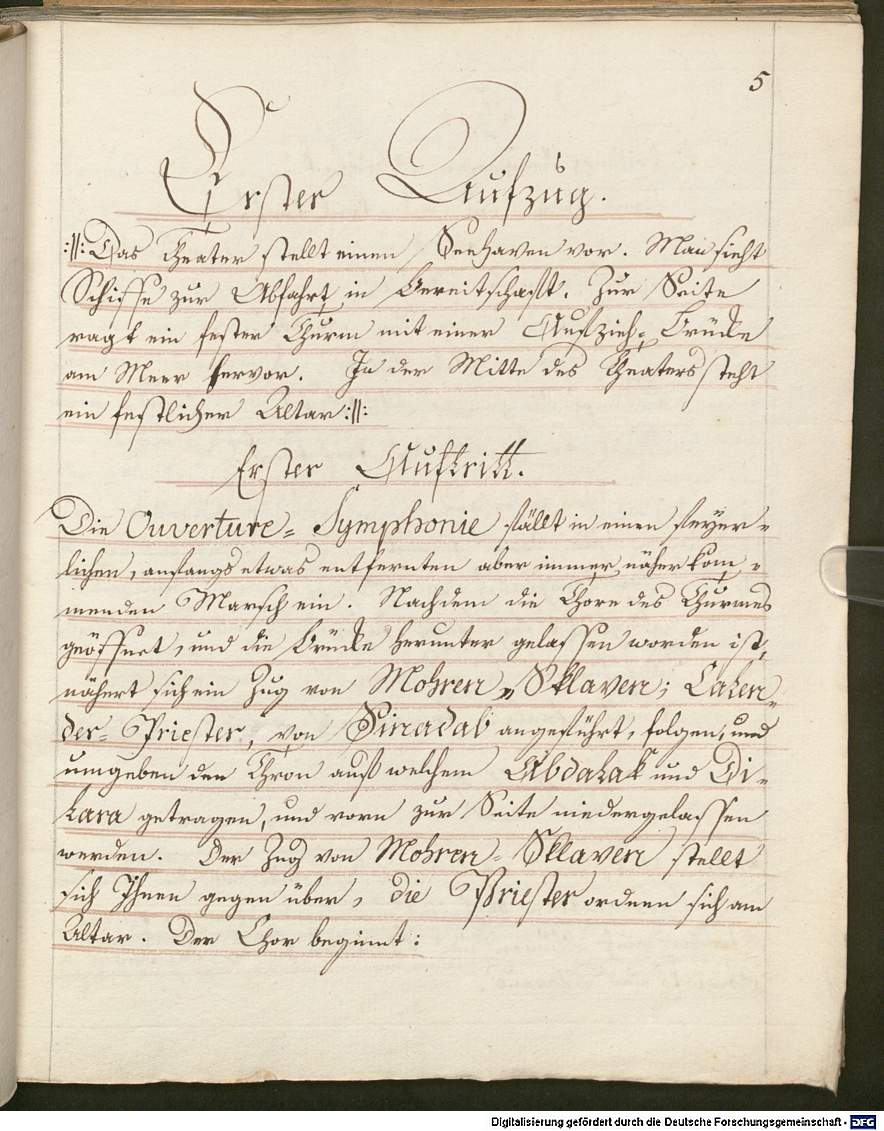 5
Erster Aufzug.
:||: Das Theater stellt einen Seehaven vor. Man sieht
Schiffe zur Abfahrt in Bereitschaft. Zur Seite
ragt ein fester Thurm mit einer Aufzieh= Brücke
am Meer hervor. In der Mitte des Theaters steht
ein festlicher Altar :||:
Erster Auftritt.
Die Ouverture= Symphonie fällt in einen feyer=
lichen, anfangs etwas entfernten aber immer näher kom=
menden Marsch ein. Nachdem die Thore des Thurmes
geöffnet, und die Brücke herunter gelassen worden ist,
nähert sich ein Zug von Mohren= Sklaven; Calen=
der= Priester, von Sinadab angeführt, folgen, und
umgeben den Thron auf welchem Abdalak und Di=
lara getragen, und vorn zur Seite niedergelassen
werden. Der Zug von Mohren= Sklaven stellt
sich Ihnen gegen über, die Priester ordnen sich am
Altar. Der Chor beginnt:
Digitalisierung gefördert durch die Deutsche Forschungsgemeinschaft - DFG